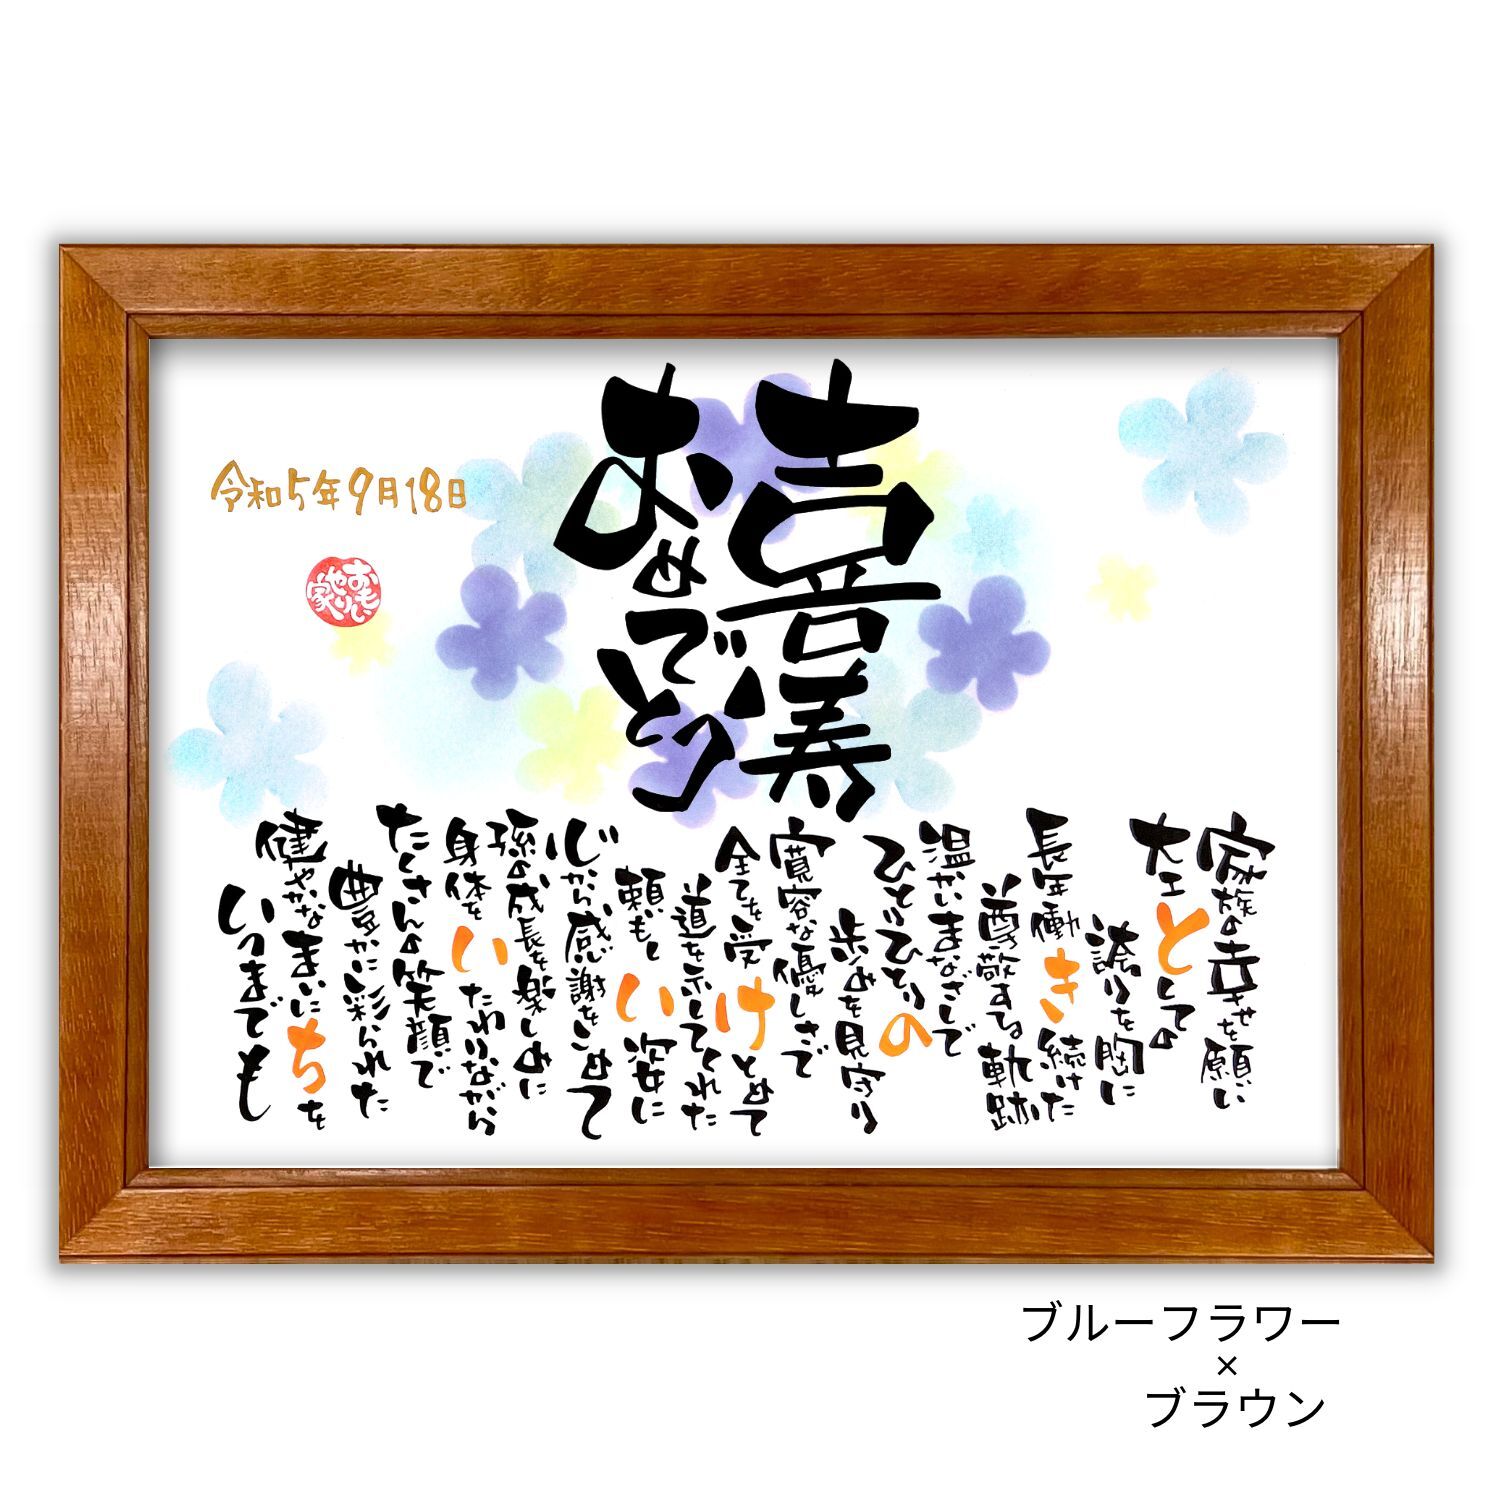 喜寿
おめでとう
令和5年9月18日
おもい
やりい
家
家族の幸せを願い
大工としての
誇りを胸に
長年働き続けた
尊敬する軌跡
温かいまなざしで
ひとりひとりの
歩みを見守り
寛容な優しさで
全てを受けとめて
道を示してくれた
頼もしい姿に
心から感謝をこめて
孫の成長を楽しみに
身体をいたわりながら
たくさんの笑顔で
豊かに彩られた
健やかなまいにちを
いつまでも
ブルーフラワー
×
ブラウン